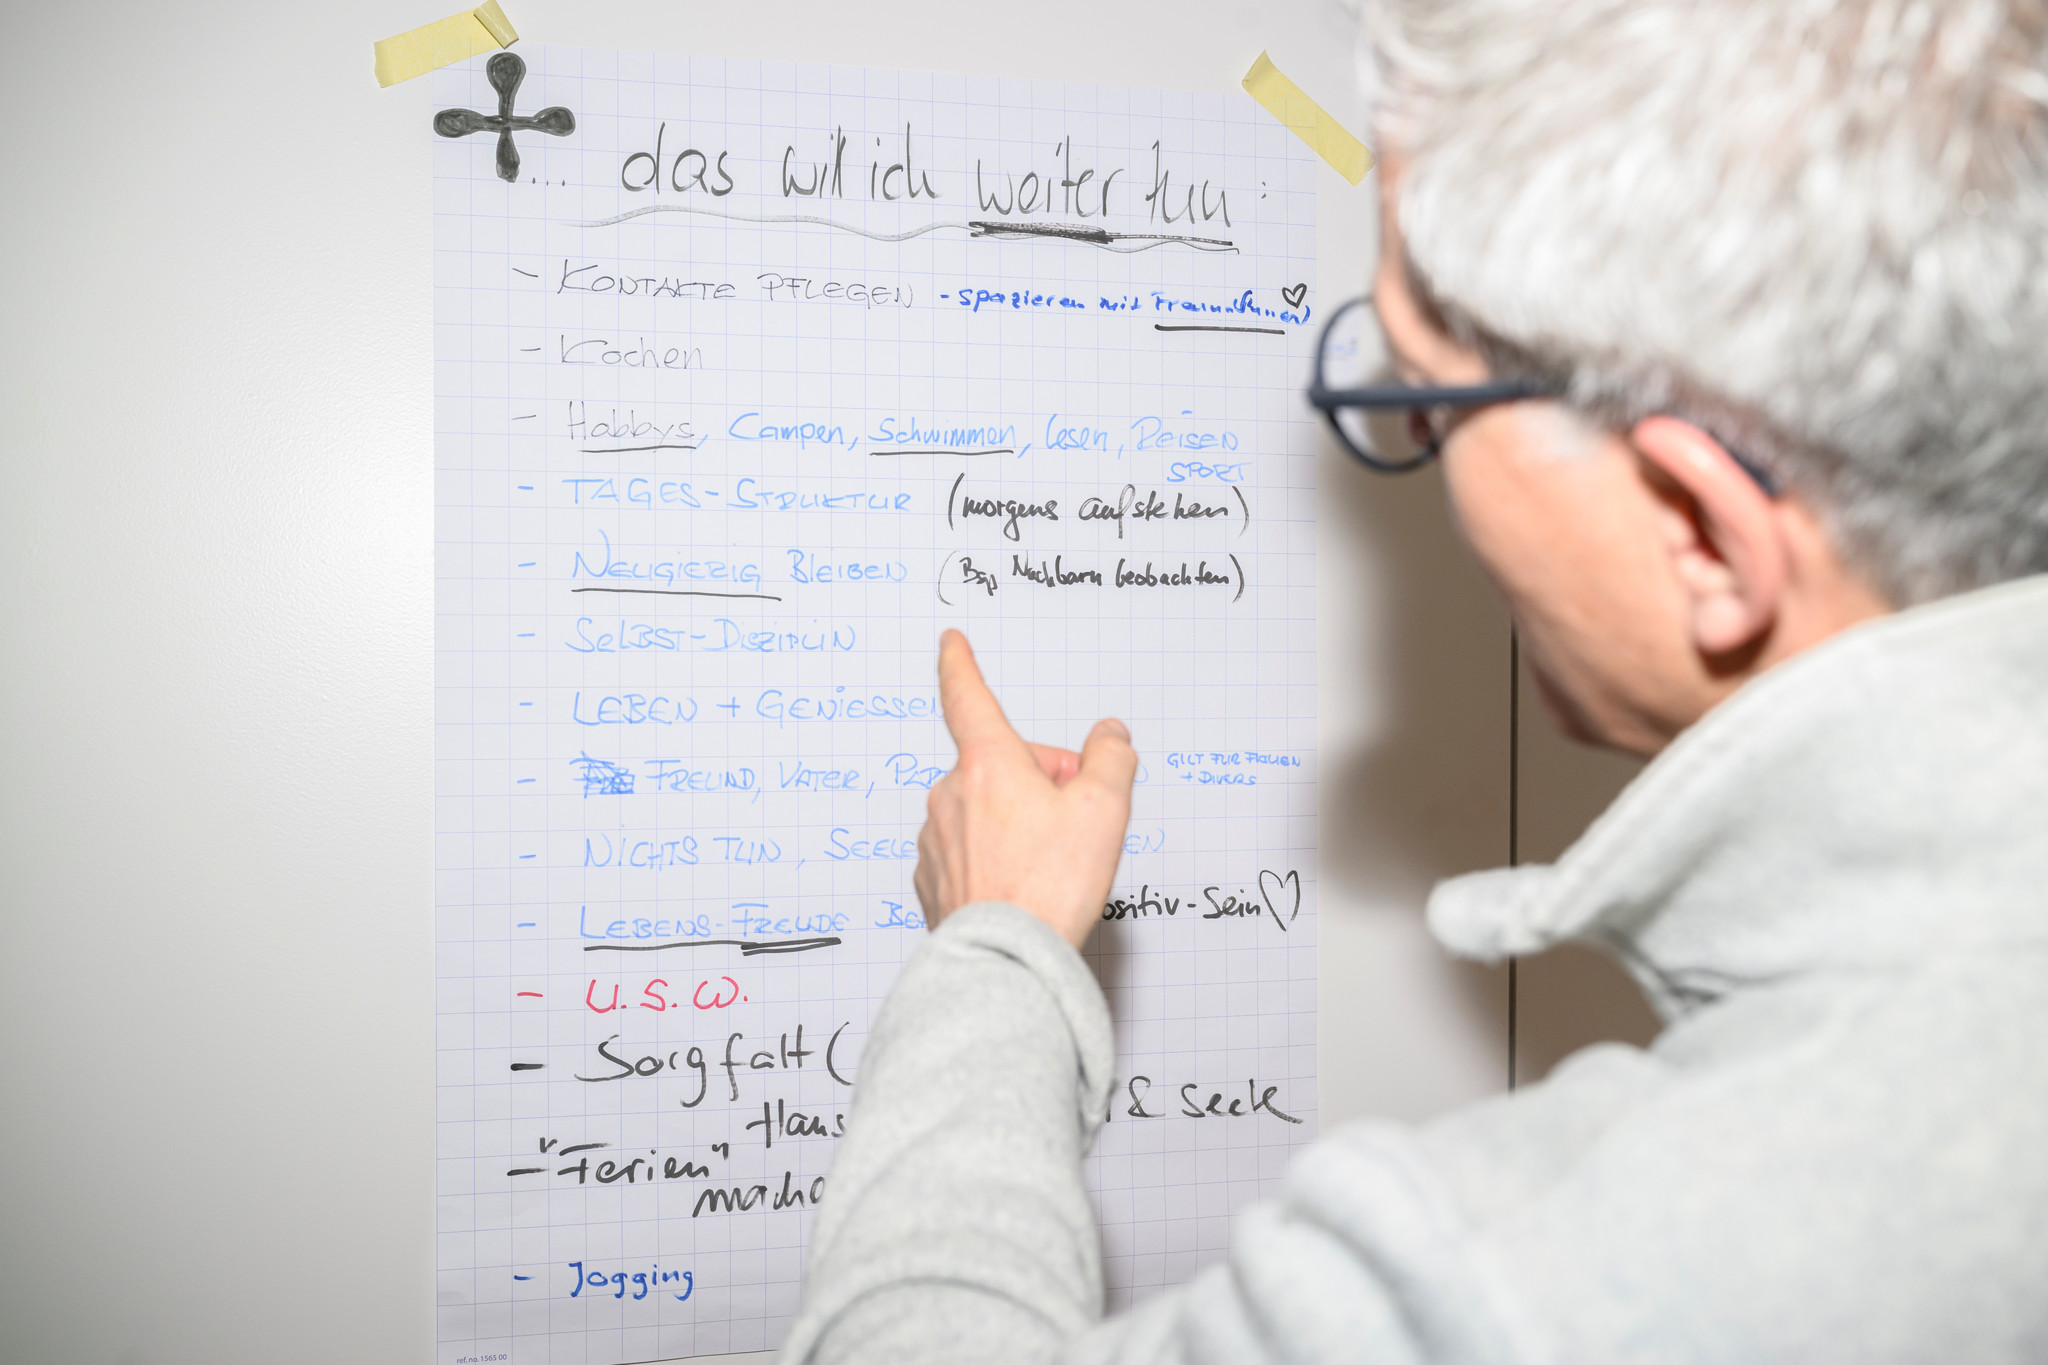 ... das will ich weiter tun :
- KONTAKTE PFLEGEN - spazieren mit Freund(innen)
- Kochen
- Hobbys, Campen, Schwimmen, lesen, REISEN
SPORT
- TAGES-STRUKTUR (morgens aufstehen)
- NEUGIERIG BLEIBEN (Bsp Nachbarn beobachten)
- SELBST-DISZIPLIN
- LEBEN + GENIESSEN
- FREUND, VATER, GILT FÜR FRAUEN
+ DIVERS
- NICHTS TUN, SEELE
- LEBENS-FREUDE Positiv-Sein
- U.S.W.
- Sorgfalt (
Haus & Seele
- "Ferien"
mache
- Jogging
ref.no. 1565 00